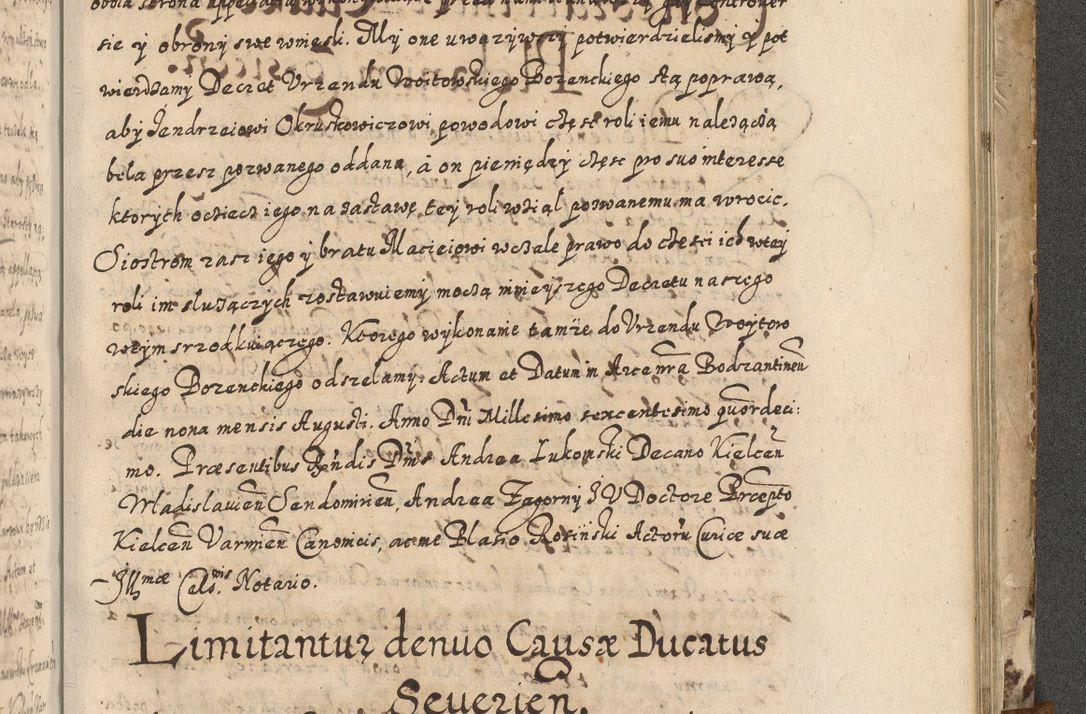 sie y obrony swe wniesli. My one uwazywszy potwierdzielismy y pot
wierdzamy Decret Vrzendu Woitowskiego Bozenckiego stą poprawą,
aby Jendrzeiowi Okruskowiczowi powodowi część roli iemu nalezącą
bela przesz pozwanego oddana, á on pieniędzy część pro suo interesse
ktorych ociecz iego na zastawę tey roli wziął pozwanemu ma wrocic.
Siostrom zasz iego y bratu Maciejowi wczale prawo do części ich wtey
roli im sluzączych zostawuiemy moczą mnieyszego Decretu naszego
wtym srzodkuiączego. Ktorego wykonanie tamże do Vrzendu Woytow
skiego Bozenckiego odszelamy. Actum et Datum in Arce nrã Bodzantineñ
die nona mensis Augusti. Anno Dñi Millesimo sexcentesimo quordeci:
mo. Præsentibus Rñdis Dñis Andrea Lukomski Decano Kielceñ
Wladislavieñ Sendomirieñ, Andrea Zagorny J V Doctore Præcepto
Kielceñ Varmieñ Canonicis, acme Blasio Rosinski Actorũ Curiæ suæ
Illmæ Celsnis Notario.
Limitantur denuo Causæ Ducatus
Severieñ.